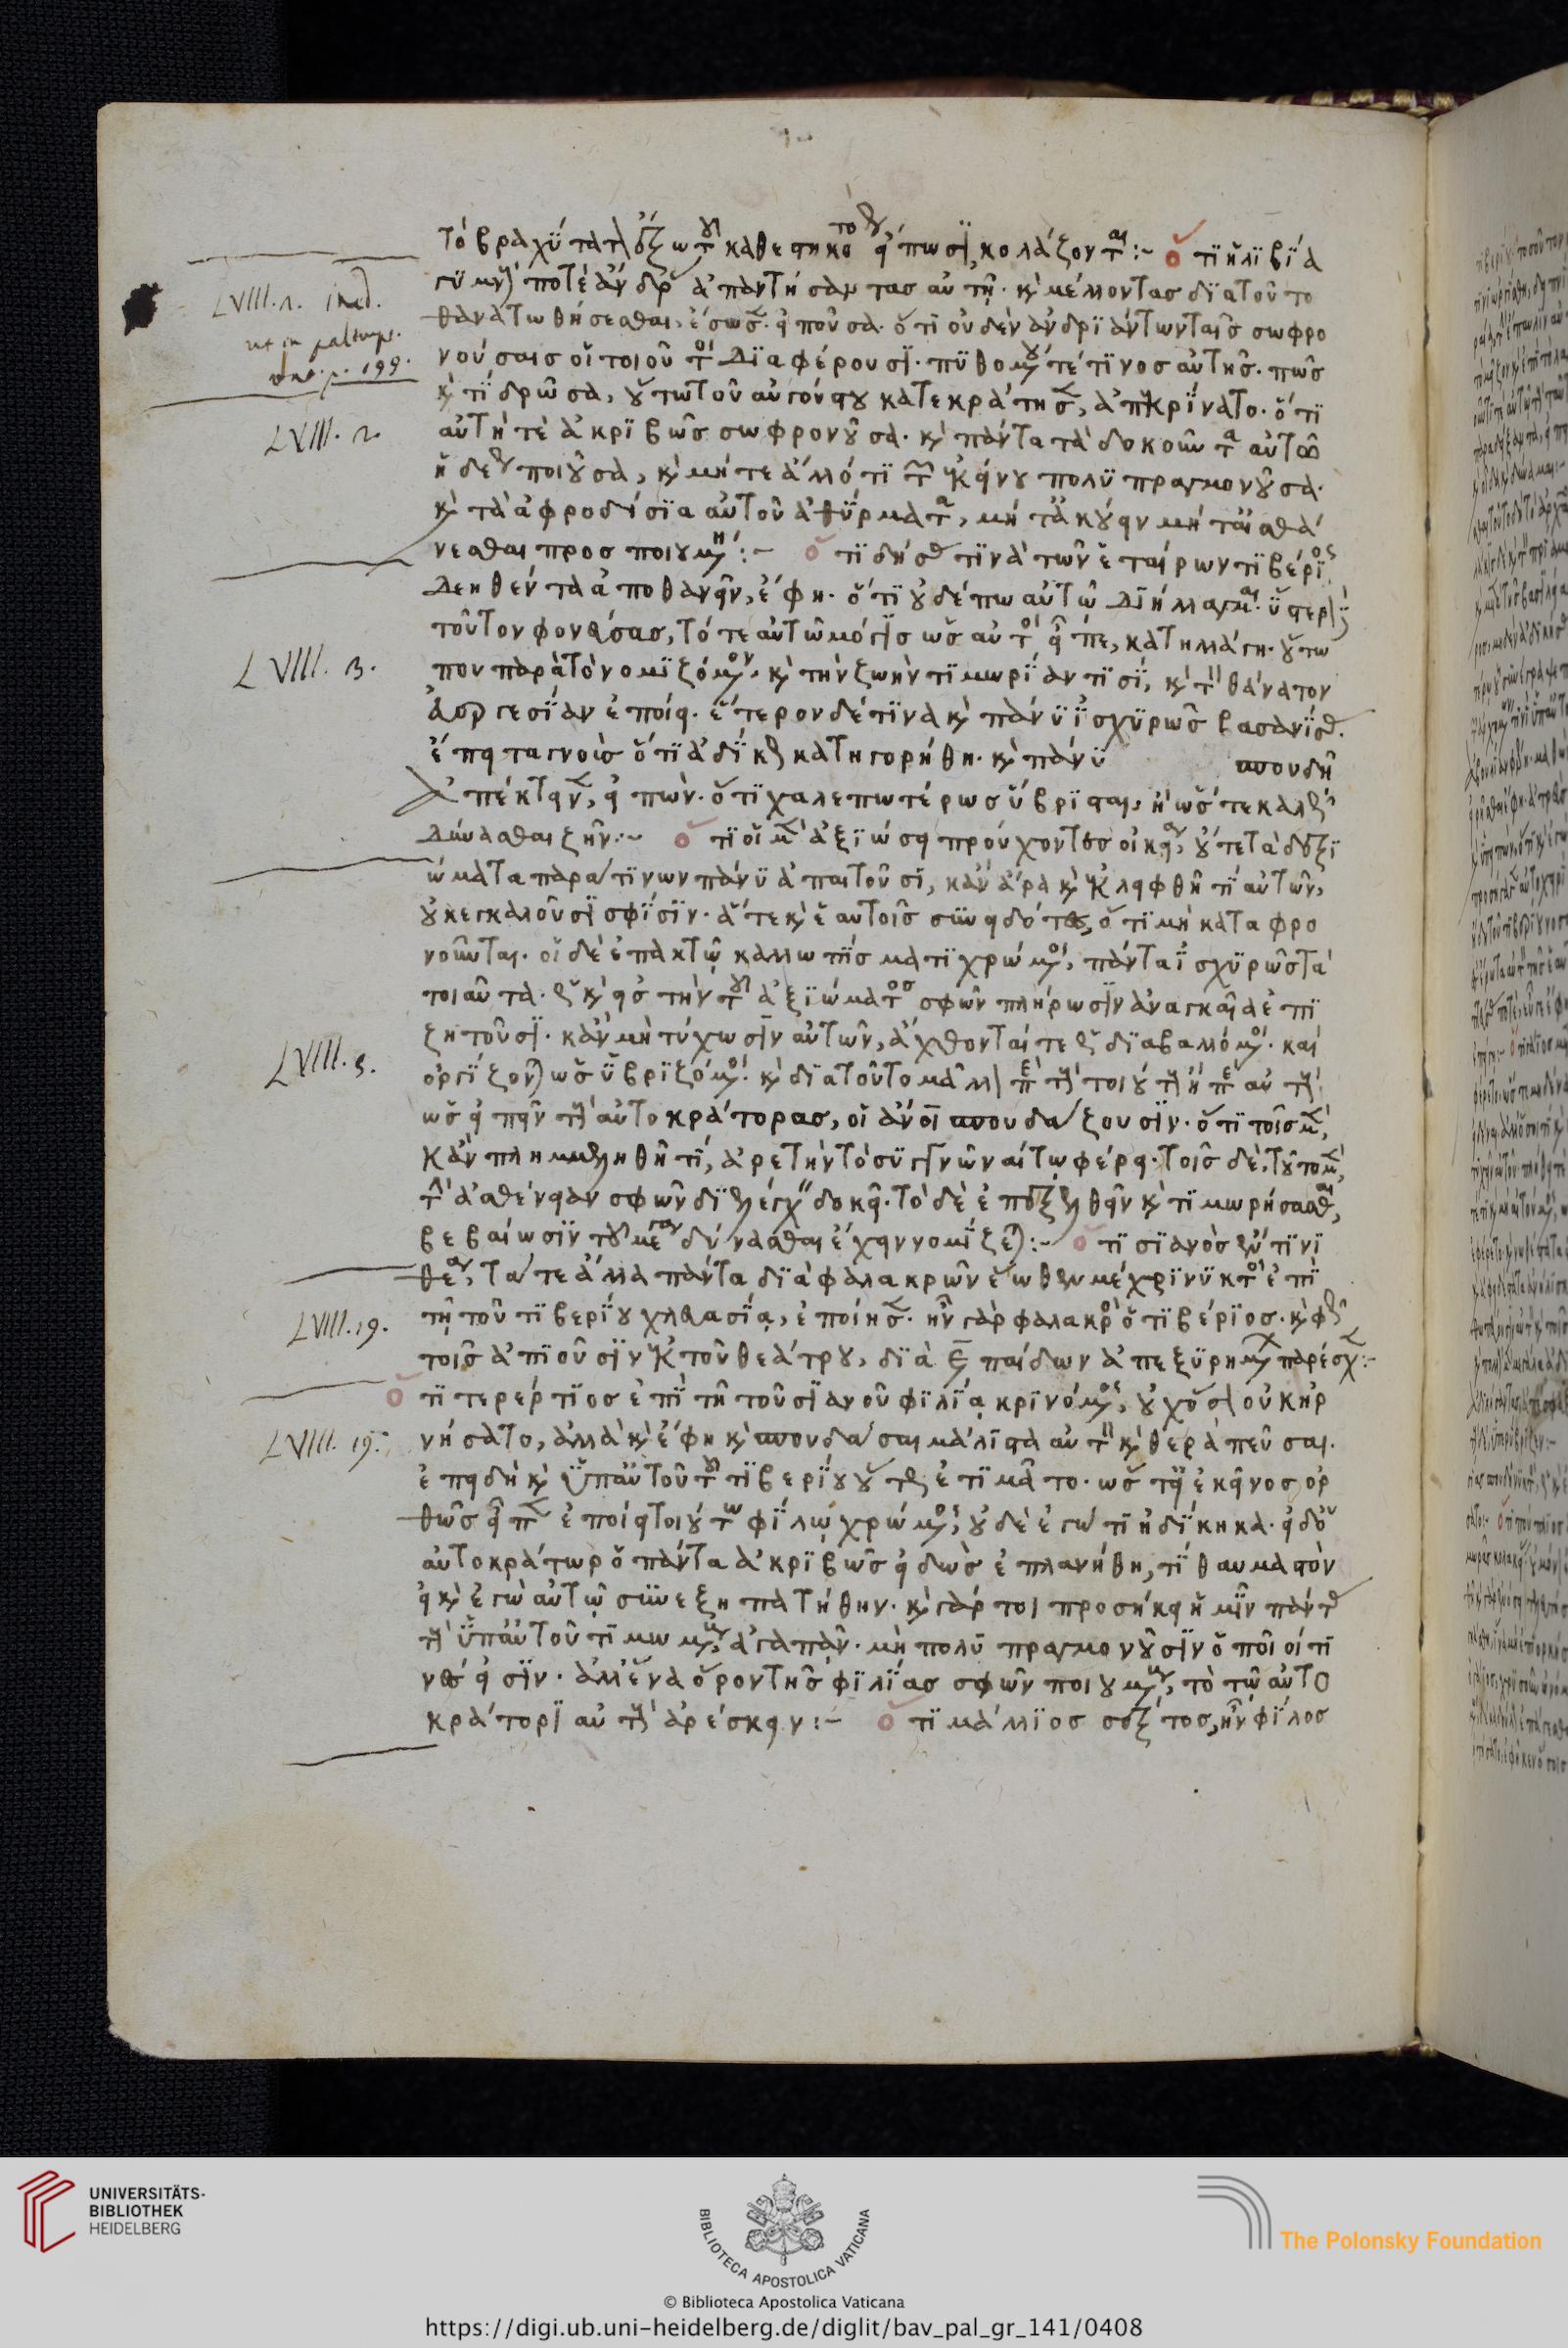 τὸ βραχύτατον ἔξω τοῦ καθεστηκότος εἴπωσι, κολάζονται:~ ὅτι ἡ λιβία
γυμνούς ποτὲ ἄνδρας ἀπαντήσαντας αὐτῇ. καὶ μέλλοντας διὰ τοῦτο
θανατωθήσεσθαι, ἔσωσεν. εἰποῦσα. ὅτι οὐδὲν ἀνδριάντων ταῖς σωφρο
νούσαις οἱ τοιοῦτοι διαφέρουσι. πυθομένου τέ τινος αὐτῆς. πῶς
καὶ τί δρῶσα, οὕτω τοῦ αὐγούστου κατεκράτησεν, ἀπεκρίνατο. ὅτι
αὐτή τε ἀκριβῶς σωφρονοῦσα. καὶ πάντα τὰ δοκοῦντα αὐτῷ
ἡδέως ποιοῦσα, καὶ μήτε ἄλλό τι τῶν ἐκείνου πολυπραγμονοῦσα.
καὶ τὰ ἀφροδίσια αὐτοῦ ἀθύρματα, μήτἀκούειν μήταἰσθά
νεσθαι προσποιουμένη:~ ὅτι δήσας τινὰ τῶν ἑταίρων τιβέριος
δεηθέντα ἀποθανεῖν, ἔφη. ὅτι οὐδέπω αὐτῷ διήλλαγμαι. ὕστερον
τοῦτον φονεύσας, τότε αὐτῷ μόγις ὡς αὐτὸς εἶπε, κατηλλάγη. οὕτω
που παρὰ τὸ νομιζόμενον. καὶ τὴν ζωὴν τιμωρίαν τισί, καὶ τὸν θάνατον
εὐεργεσίαν ἐποίει. ἕτερον δέ τινα καὶ πάνυ ἰσχυρῶς βασανίσας.
ἔπειτα γνοὺς ὅτι ἀδίκως κατηγορήθη. καὶ πάνυ σπουδῇ
ἀπέκτεινεν, εἰπών. ὅτι χαλεπωτέρως ὕβρισται, ἢ ὥστε καλῶς
δύνασθαι ζῆν:~ ὅτι οἱ μὲν ἀξιώσει προύχοντες οἰκείᾳ, οὔτε τὰ δεξι
ώματα παρά τινων πάνυ ἀπαιτοῦσι, κἂν ἄρα καὶ ἐκλειφθῇ τι αὐτῶν,
οὐκ ἐγκαλοῦσι σφίσιν. ἅτε καὶ ἑαυτοῖς συνειδότες, ὅτι μὴ καταφρο
νοῦνται. οἱ δὲ ἐπακτῷ καλλωπίσματι χρώμενοι, πάντα ἰσχυρῶς τὰ
τοιαῦτα. ὡς καὶ εἰς τὴν τοῦ ἀξιώματος σφῶν πλήρωσιν ἀναγκαῖα ἐπι
ζητοῦσι. κἂν μὴ τύχωσιν αὐτῶν, ἄχθονταί τε ὡς διαβαλλόμενοι. καὶ
ὀργίζονται ὡς ὑβριζόμενοι. καὶ διὰ τοῦτο μᾶλλον περὶ τοὺς τοιούτους ἢ περὶ αὐτοὺς
ὡς εἰπεῖν τοὺς αὐτοκράτορας, οἱ ἄνοι σπουδάζουσιν. ὅτι τοῖς μὲν,
κἂν πλημμεληθῇ τι, ἀρετὴν τὸ συγγνῶναί τῳ φέρει. τοῖς δὲ, τοῦτο μὲν,
τὴν ἀσθένειαν σφῶν διελέγχειν δοκεῖ. τὸ δὲ ἐπεξελθεῖν καὶ τιμωρήσασθαι,
βεβαίωσιν τοῦ μέγα δύνασθαι ἔχειν νομίζεται:~ ὅτι σιανὸς ἔν τινι
θέᾳ, τά τε ἄλλα πάντα διὰ φαλακρῶν ἕωθεν μέχρι νυκτὸς ἐπὶ
τῇ τοῦ τιβερίου χλευασίᾳ, ἐποίησεν. ἦν γὰρ φαλακρὸς ὁ τιβέριος. καὶ φῶς
τοῖς ἀπιοῦσιν ἐκ τοῦ θεάτρου, διὰ ͵ε παίδων ἀπεξυρημένων παρέσχε:~
ὅτι τερέρτιος ἐπὶ τῇ τοῦ σιανοῦ φιλίᾳ κρινόμενος, οὐχ ὅσον οὐκ ἠρ
νήσατο, ἀλλὰ καὶ ἔφη καὶ σπουδάσαι μάλιστα αὐτὸν καὶ θεραπεῦσαι.
ἐπειδὴ καὶ ὑπαὐτοῦ τοῦ τιβερίου οὕτως ἐτιμᾶτο. ὥστε εἰ ἐκεῖνος ὀρ
θῶς εἶπεν ἐποίει τοιούτῳ φίλῳ χρώμενος, οὐδὲ ἐγώ τι ἠδίκηκα. εἰ δὲ ὁ
αὐτοκράτωρ ὁ πάντα ἀκριβῶς εἰδὼς ἐπλανήθη, τί θαυμαστὸν
εἰ καὶ ἐγὼ αὐτῷ συνεξηπατήθην. καὶ γάρ τοι προσήκει ἡμῖν πάντας
τοὺς ὑπαὐτοῦ τιμωμένους ἀγαπᾶν. μὴ πολυπραγμονοῦσιν ὁποῖοί τι
νές εἰσιν. ἀλλἕνα ὅρον τῆς φιλίας σφῶν ποιουμένους, τὸ τῷ αὐτο
κράτορι αὐτοὺς ἀρέσκειν:~ ὅτι μάλλιος σέξτος, ἦν φίλος
LVIII.2. ined.
ut in palimps.
p. 199.
LVIII. 2.
LVIII. 3.
LVIII. 5.
LVIII. 19.
LVIII. 19.
UNIVERSITÄTS-
BIBLIOTHEK
HEIDELBERG
BIBLIOTECA APOSTOLICA VATICANA
© Biblioteca Apostolica Vaticana
The Polonsky Foundation
https://digi.ub.uni-heidelberg.de/diglit/bav_pal_gr_141/0408